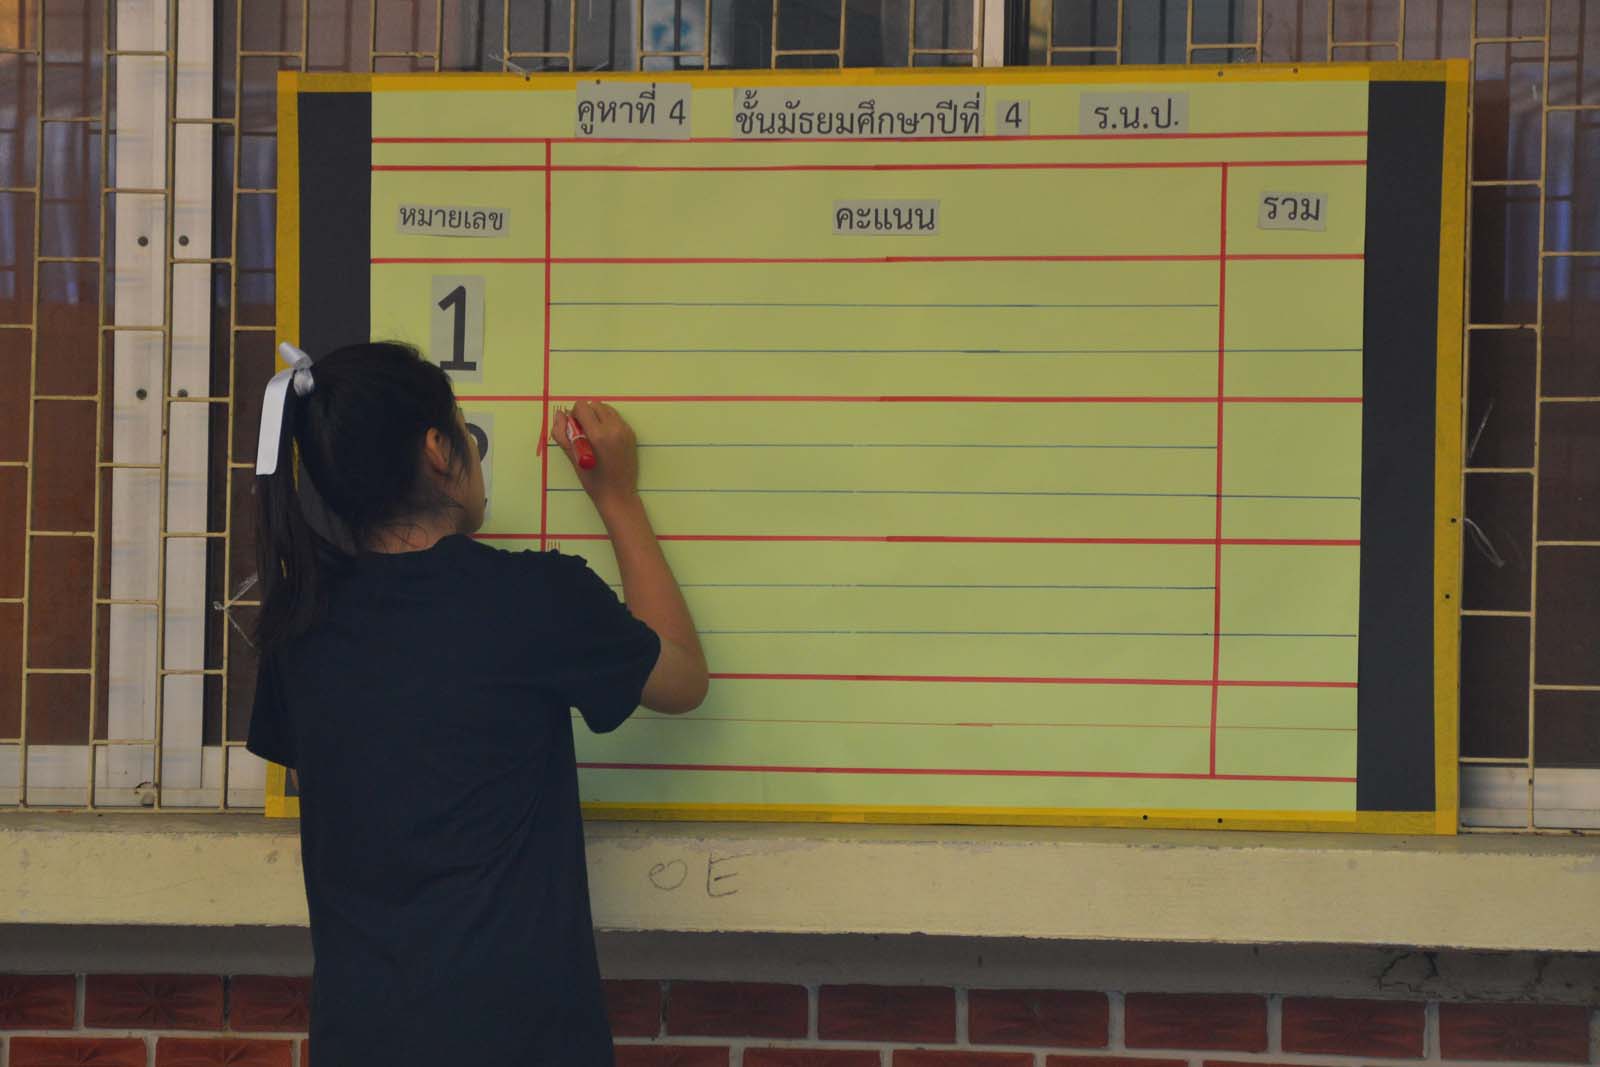 คูหาที่ 4 ชั้นมัธยมศึกษาปีที่ 4 ร.น.ป.
หมายเลข คะแนน รวม
1
2
OE